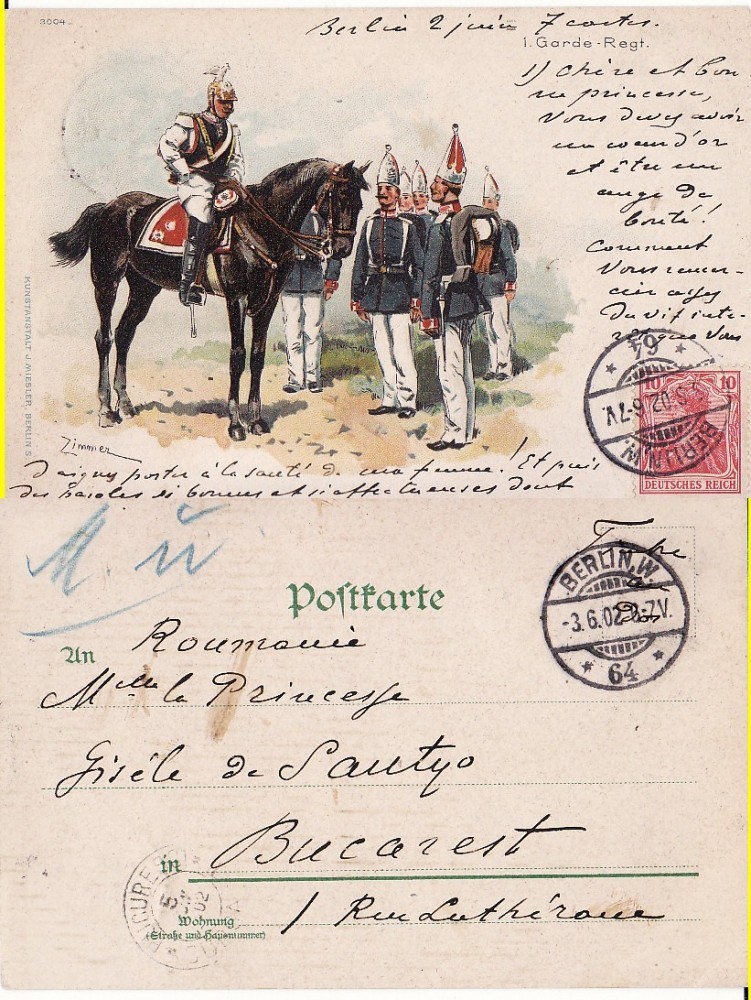 3004
Berlin 2 juin 7 cartes.
1. Garde-Regt.
1) Chère et bon
ne princesse,
Vous devez avoir
un coeur d'or
et être un
ange de
bonté!
Comment
Vous remer-
cier assez
du vif inté-
rêt que Vous
64
BERLIN.W.
02.6-7V.
10 10
DEUTSCHES REICH
KUNSTANSTALT J. MIESLER, BERLIN S.
Zimmer
daignez porter à la santé de ma femme! Et puis
des paroles si bonnes et si affectueuses dont
M
Timbre
au
dos
BERLIN.W.
-3.6.02.6-7V.
64
Postkarte
An Roumanie
Melle la Princesse
Gisèle de Santyo
in Bucarest
1 Rue Luthérane
Wohnung
(Straße und Hausnummer)
5
02